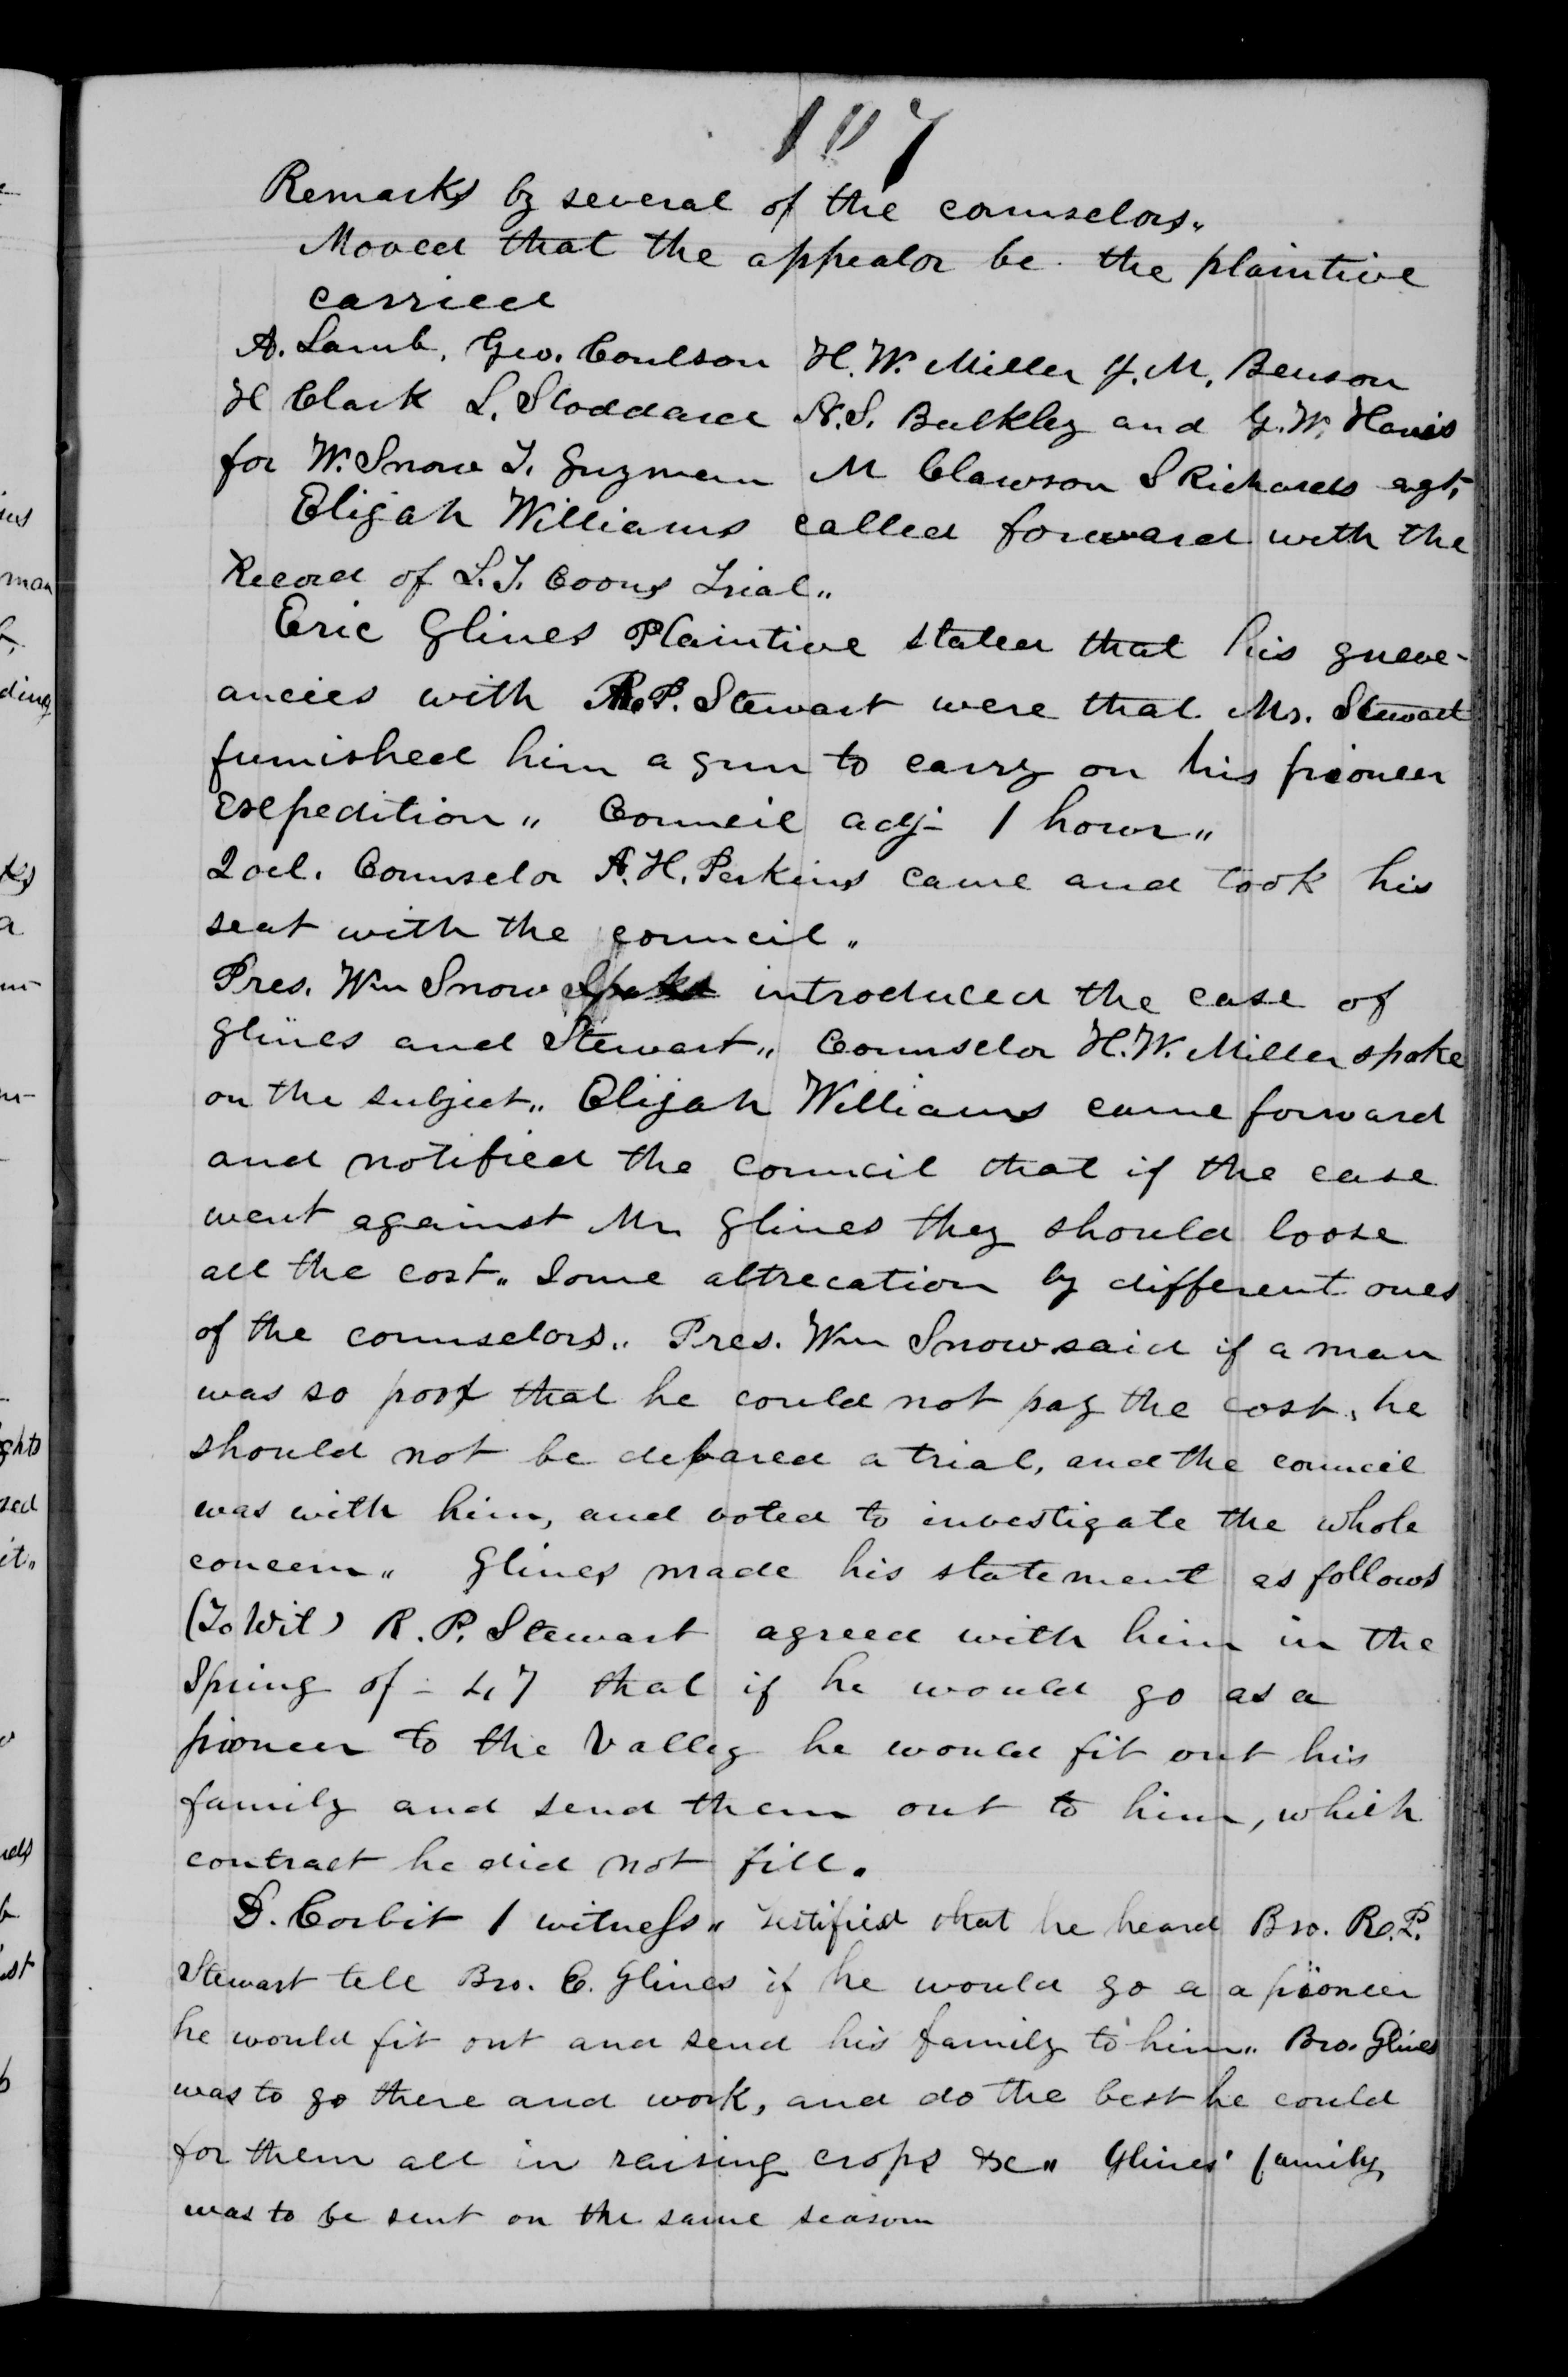 107
Remarks by several of the counselors,,
Moved that the appealor be the plaintive
carried
A. Lamb, Geo. Coulson H. W. Miller J. M. Benson
H Clark L. Stoddard N. S. Bulkley and G. W. Harris
for W. Snow T. Guyman M Clawson S Richards agt.
Elijah Williams called forward with the
Record of L. T. Coons Trial,,
Eric Glines Plaintive stated that his greve-
ancies with R. P. Stewart were that Mr. Stewart
furnished him a gun to carry on his pioneer
expedition,, Council adj- 1 hour,,
2 ocl. Counselor A. H. Perkins came and took his
seat with the council,,
Pres. Wm Snow introduced the case of
Glines and Stewart,, Counselor H. W. Miller spoke
on the subject,, Elijah Williams came forward
and notified the council that if the case
went against Mr Glines they should loose
all the cost,, Some altrecation by different ones
of the counselors,, Pres. Wm Snow said if a man
was so poor that he could not pay the cost, he
should not be debared a trial, and the council
was with him, and voted to investigate the whole
concern,, Glines made his statement as follows
(To Wit) R. P. Stewart agreed with him in the
Spring of - 47 that if he would go as a
pioneer to the Valley he would fit out his
family and send them out to him, which
contract he did not fill.
D. Corbit 1 witness,, testified that he heard Bro. R. P.
Stewart tell Bro. E. Glines if he would go a a pioneer
he would fit out and send his family to him,, Bro. Glines
was to go there and work, and do the best he could
for them all in raising crops &c,, Glines' family
was to be sent on the same season